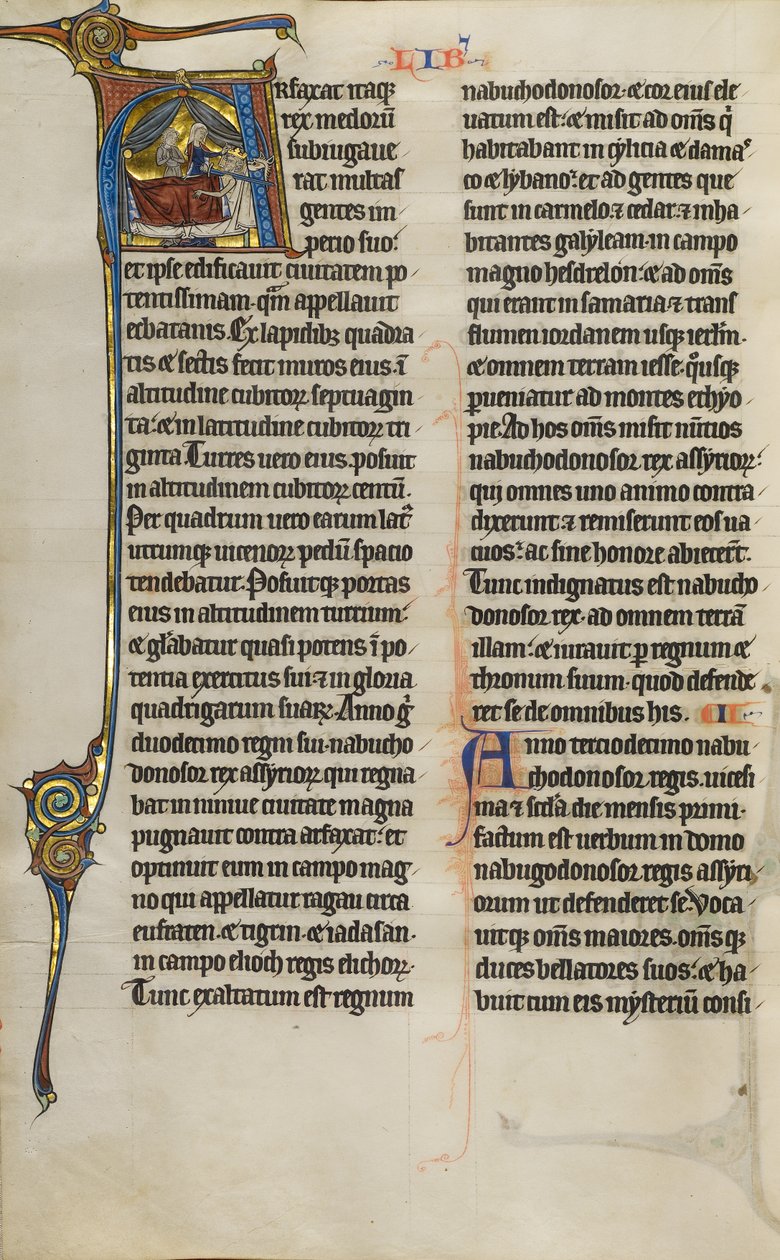 LIB
Arfaxat itaqꝫ
rex medorū
subiugaue
rat multas
gentes im
perio suo:
et ipse edificauit ciuitatem po
tentissimam. qm̄ appellauit
ecbatanis. Ex lapidibꝫ quadra
tis et sectis fecit muros eius. ī
altitudine cubitoꝝ septuagin
ta: et in latitudine cubitoꝝ tri
ginta. Turres uero eius. posuit
in altitudinem cubitoꝝ centū.
Per quadrum uero earum lat᷑
utrumqꝫ uicenoꝝ pedū spacio
tendebatur. Posuitqꝫ portas
eius in altitudinem turrium:
et gl̄abatur quasi potens ī po
tentia exercitus sui. ⁊ in gloria
quadrigarum suaꝝ. Anno gͥ
duodecimo regni sui. nabucho
donosor rex assyrioꝝ qui regna
bat in niniue ciuitate magna
pugnauit contra arfaxat: et
optinuit eum in campo mag
no qui appellatur ragau circa
eufraten. et tigrin. et iadasan.
in campo elioch regis elichoꝝ.
Tunc exaltatum est regnum
nabuchodonosor. et cor eius ele
uatum est: et misit ad om̄s qͥ
habitabant in cylicia et damas
co et lybano: et ad gentes que
sunt in carmelo. ⁊ cedar. ⁊ inha
bitantes galyleam. in campo
magno hesdrelon: et ad om̄s
qui erant in samaria. ⁊ trans
flumen iordanem usqꝫ ierl̄m.
et omnem terram iesse. qͦusqꝫ
ꝑueniatur ad montes ethyo
pie. Ad hos om̄s misit nūtios
nabuchodonosor. rex assyrioꝝ:
qui omnes uno animo contra
dixerunt. ⁊ remiserunt eos ua
cuos: ac sine honore abiecer̄t.
Tunc indignatus est nabucho
donosor rex. ad omnem terrā
illam: et iurauit ꝑ regnum et
thronum suum. quod defende
ret se de omnibus his. II
Anno terciodecimo nabu
chodonosor. regis. uicesi
ma ⁊ scd̄a die mensis primi.
factum est uerbum in domo
nabugodonosor. regis assyri
orum ut defenderet se. Voca
uitqꝫ om̄s maiores. om̄sqꝫ
duces bellatores suos: et ha
buit cum eis mysteriū consi